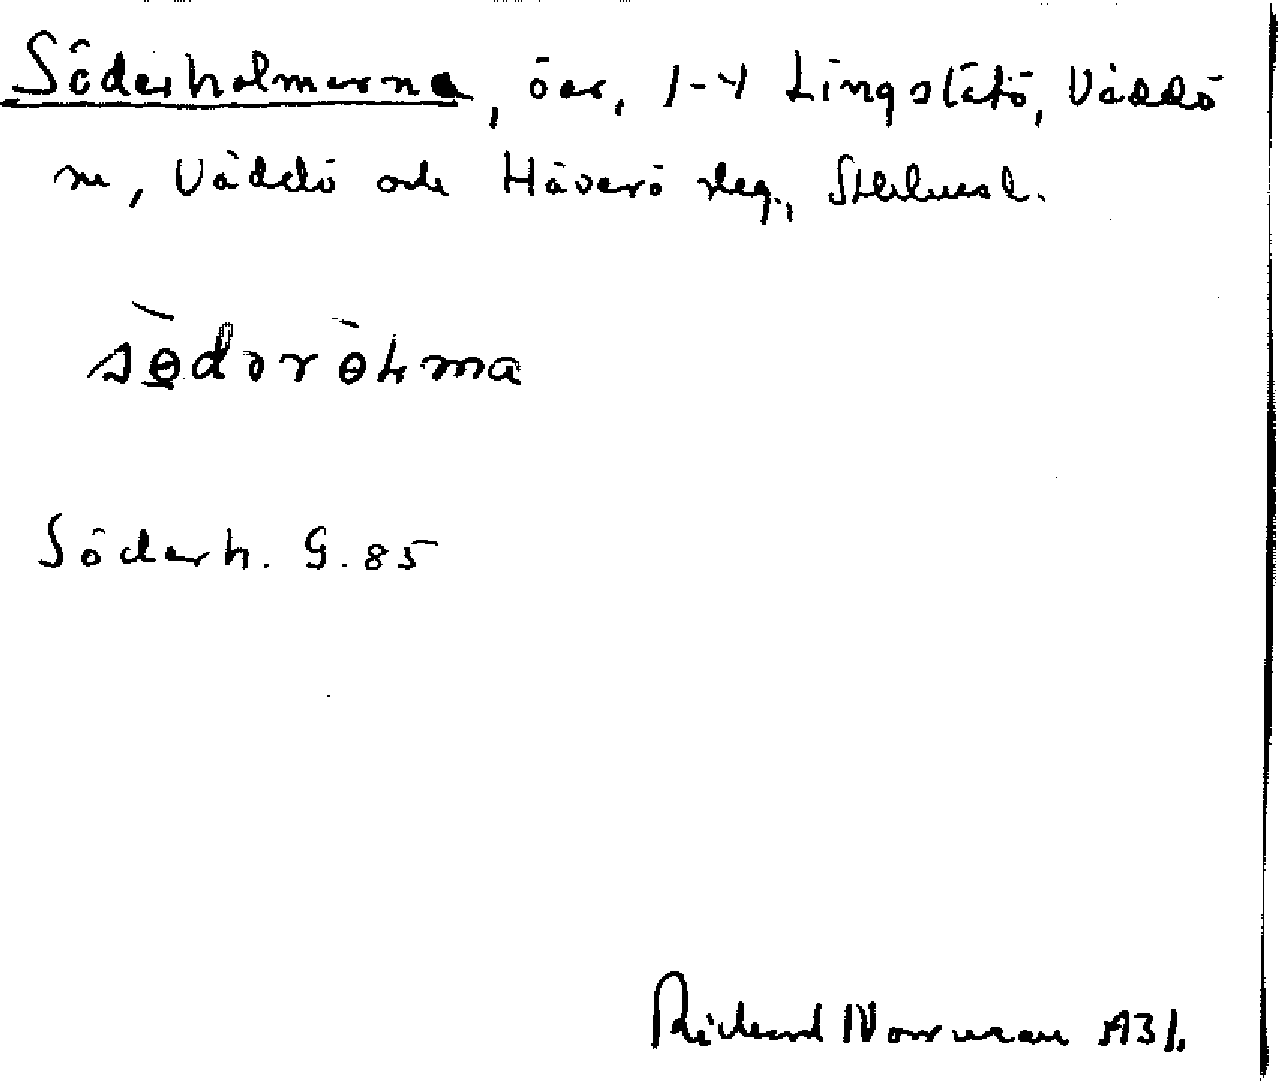 Söderholmarna, öar, 1-4 Lingslätö, Väddö
sn, Väddö och Häverö skg., Sthlms l.
sòdəròɫma
Söderh. G. 85
Richard Norrman 1931.